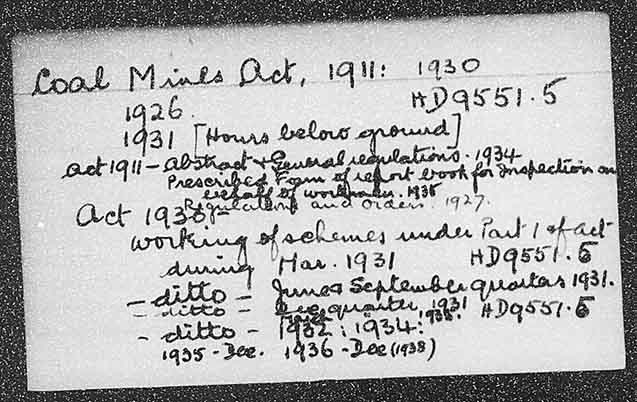 Coal Mines Act, 1911: 1930
1926. HD9551.5
1931 [Hours below ground]
Act 1911 - Abstract & General regulations. 1934
Prescribed Form of report book for Inspection on
behalf of workmen. 1938
Regulations and Orders. 1927.
Act 1930
Working of schemes under Part I of Act
during Mar. 1931 HD9551.5
- ditto - June & September quarters 1931.
- ditto - Dec quarter 1931 HD9551.5
- ditto - 1932: 1934:
1935 - Dec. 1936 - Dec (1938)